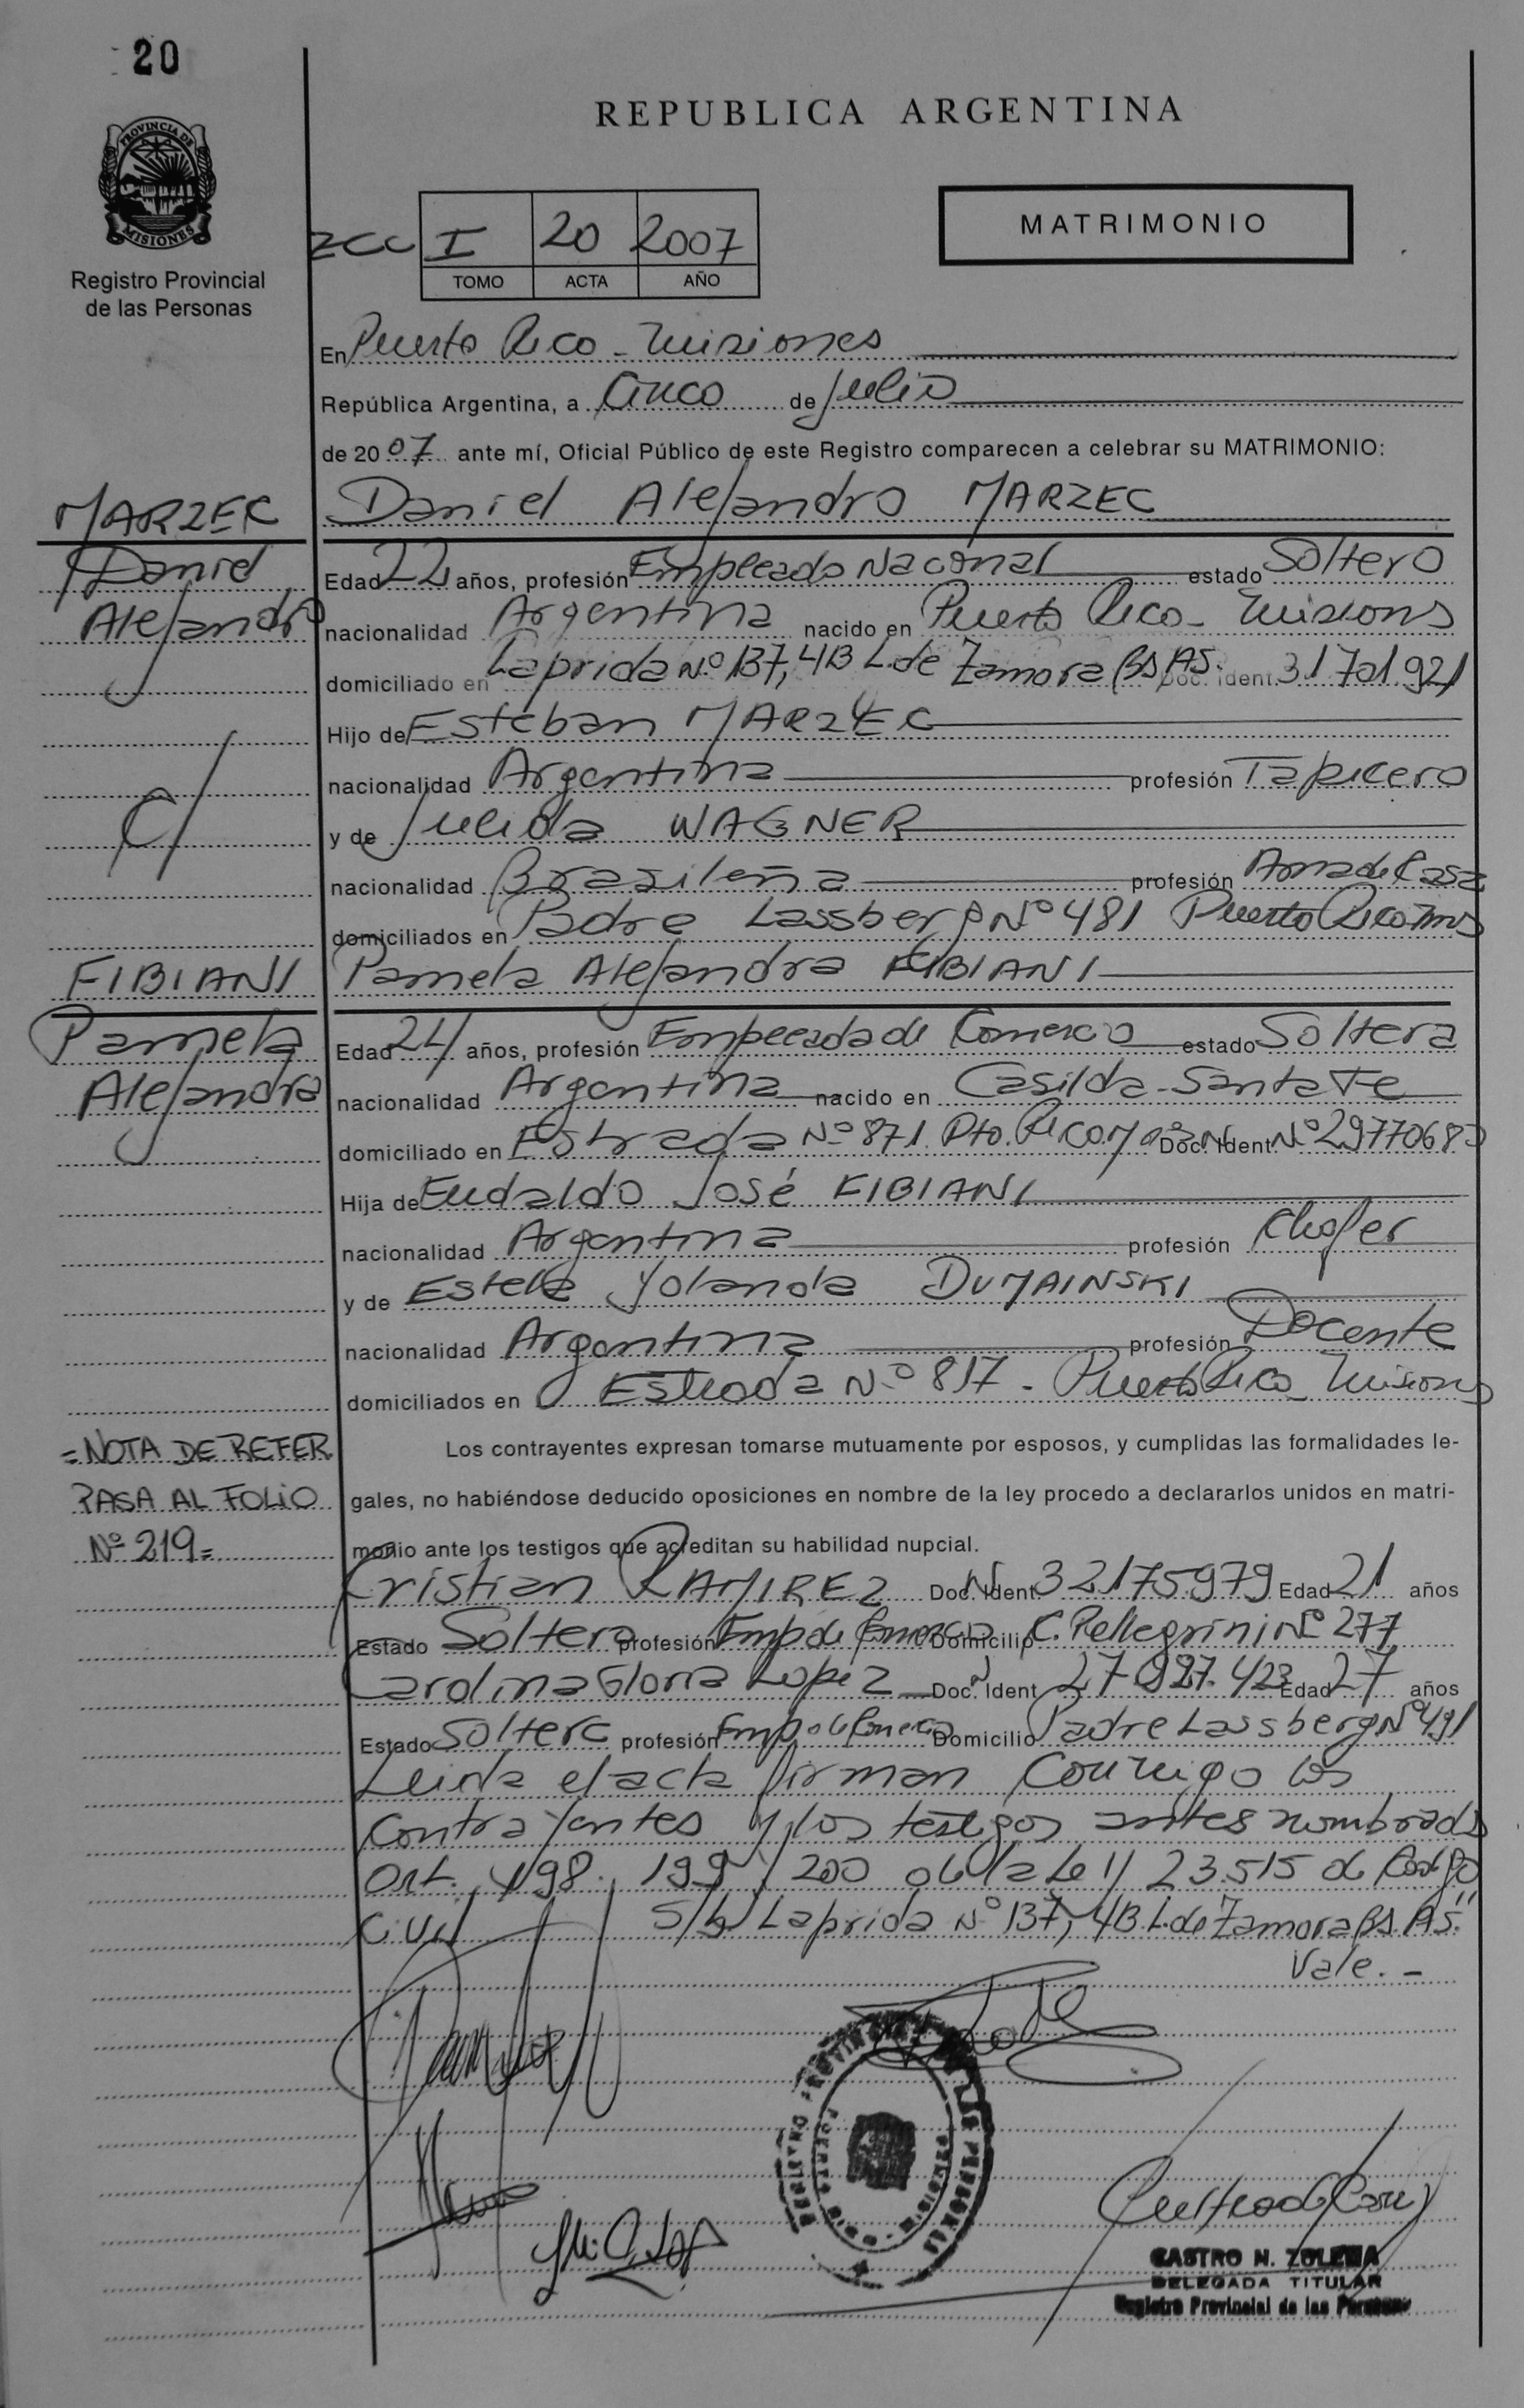 20
REPUBLICA ARGENTINA
PROVINCIA DE
MISIONES
Registro Provincial
de las Personas
I 20 2007
TOMO ACTA AÑO
MATRIMONIO
En Puerto Rico - Misiones
República Argentina, a Cinco de Julio
de 2007 ante mí, Oficial Público de este Registro comparecen a celebrar su MATRIMONIO:
MARZEC
Daniel
Alejandro
c/
FIBIANI
Pamela
Alejandra
= NOTA DE REFER
PASA AL FOLIO
Nº 219 =
Daniel Alejandro MARZEC
Edad 22 años, profesión Empleado Nacional estado Soltero
nacionalidad Argentina nacido en Puerto Rico - Misiones
domiciliado en Laprida Nº 137, 4B L. de Zamora Bs As. Doc. Ident. 31701921
Hijo de Esteban MARZEC
nacionalidad Argentina profesión Tapicero
y de Julida WAGNER
nacionalidad Brasileña profesión Ama de Casa
domiciliados en Padre Lassberg Nº 481 Puerto Rico Mns
Pamela Alejandra FIBIANI
Edad 24 años, profesión Empleada de Comercio estado Soltera
nacionalidad Argentina nacido en Casilda - Santa Fe
domiciliado en Estrada Nº 871 Pto. Rico Doc. Ident. Nº
Hija de Eudaldo José FIBIANI
nacionalidad Argentina profesión Chofer
y de Estela Yolanda DUMAINSKI
nacionalidad Argentina profesión Docente
domiciliados en Estrada Nº 817 - Puerto Rico - Misiones
Los contrayentes expresan tomarse mutuamente por esposos, y cumplidas las formalidades le-
gales, no habiéndose deducido oposiciones en nombre de la ley procedo a declararlos unidos en matri-
monio ante los testigos que acreditan su habilidad nupcial.
Cristian RAMIREZ Doc. Ident 32175979 Edad 21 años
Estado Soltero profesión Emp de Comercio Domicilio C. Pellegrini Nº 277
Carolina Gloria Lopez Doc. Ident 27 Edad 27 años
Estado Soltera profesión Emp de Comercio Domicilio Padre Lassberg Nº 491
Leida el acta firman conmigo los
contrayentes y los testigos antes nombrados
Art. 198, 199 y 200 de la Ley 23.515 de Codigo
Civil S/b/ Laprida Nº 137, 4B L. de Zamora Bs. As."
Vale. -
CASTRO N. ZULEMA
DELEGADA TITULAR
Registro Provincial de las Personas